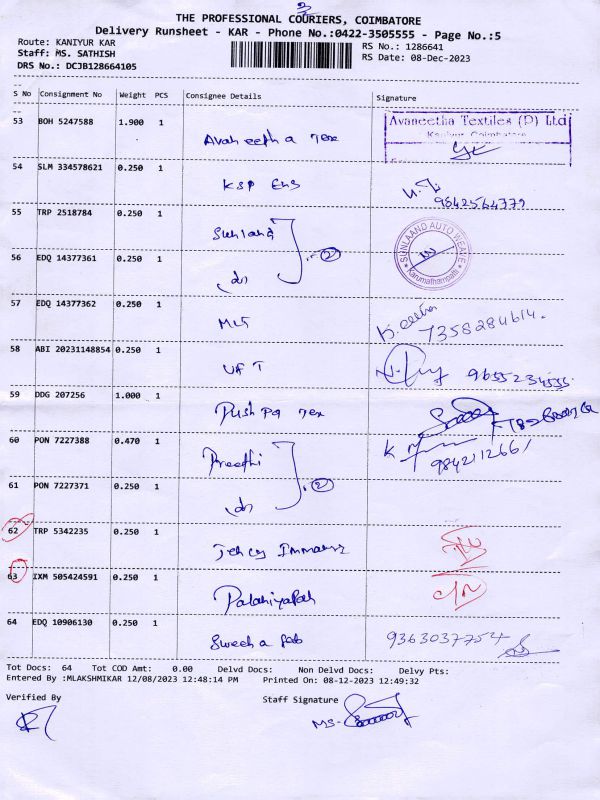 THE PROFESSIONAL COURIERS, COIMBATORE
Delivery Runsheet - KAR - Phone No.:0422-3505555 - Page No.:5
Route: KANIYUR KAR
RS No.: 1286641
Staff: MS. SATHISH
RS Date: 08-Dec-2023
DRS No.: DCJB128664105
S No Consignment No Weight PCS Consignee Details Signature
53 BOH 5247588 1.900 1 Avaneetha Tex
Avaneetha Textiles (P) Ltd
Kaniyur, Coimbatore
54 SLM 334578621 0.250 1 KSP Eng
9842564779
55 TRP 2518784 0.250 1 Sunland
SUNLAAND AUTO WEAVE
Karumathampatti
2
56 EDQ 14377361 0.250 1 do
57 EDQ 14377362 0.250 1 MLS K. Geetha
7358284614.
58 ABI 20231148854 0.250 1 UFT 9655234555
59 DDG 207256 1.000 1 Pushpa Tex
60 PON 7227388 0.470 1 Preethi
9842112661
2
61 PON 7227371 0.250 1 do
62 TRP 5342235 0.250 1
63 IXM 505424591 0.250 1
64 EDQ 10906130 0.250 1 Swetha fab 9363037754
Tot Docs: 64 Tot COD Amt: 0.00 Delvd Docs: Non Delvd Docs: Delvy Pts:
Entered By :MLAKSHMIKAR 12/08/2023 12:48:14 PM Printed On: 08-12-2023 12:49:32
Verified By Staff Signature